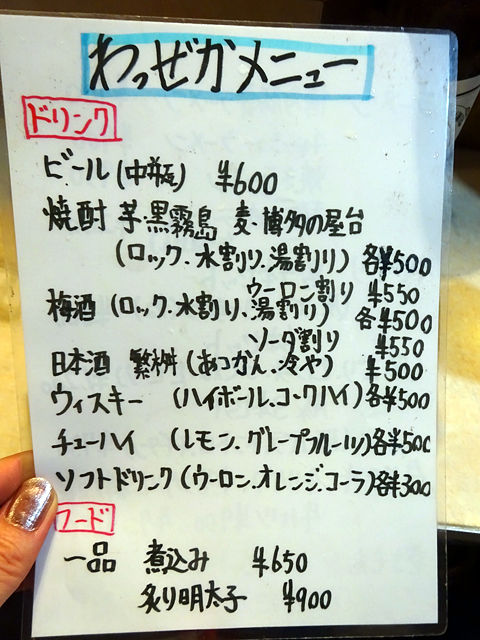 わっぜかメニュー
ドリンク
ビール(中瓶) ¥600
焼酎 芋・黒霧島 麦・博多の屋台
(ロック、水割り、湯割り) 各¥500
ウーロン割り ¥550
梅酒(ロック、水割り、湯割り) 各¥500
ソーダ割り ¥550
日本酒 繁桝(あつかん、冷や) ¥500
ウィスキー (ハイボール、コークハイ) 各¥500
チューハイ (レモン、グレープフルーツ) 各¥500
ソフトドリンク(ウーロン、オレンジ、コーラ) 各¥300
フード
一品 煮込み ¥650
炙り明太子 ¥900